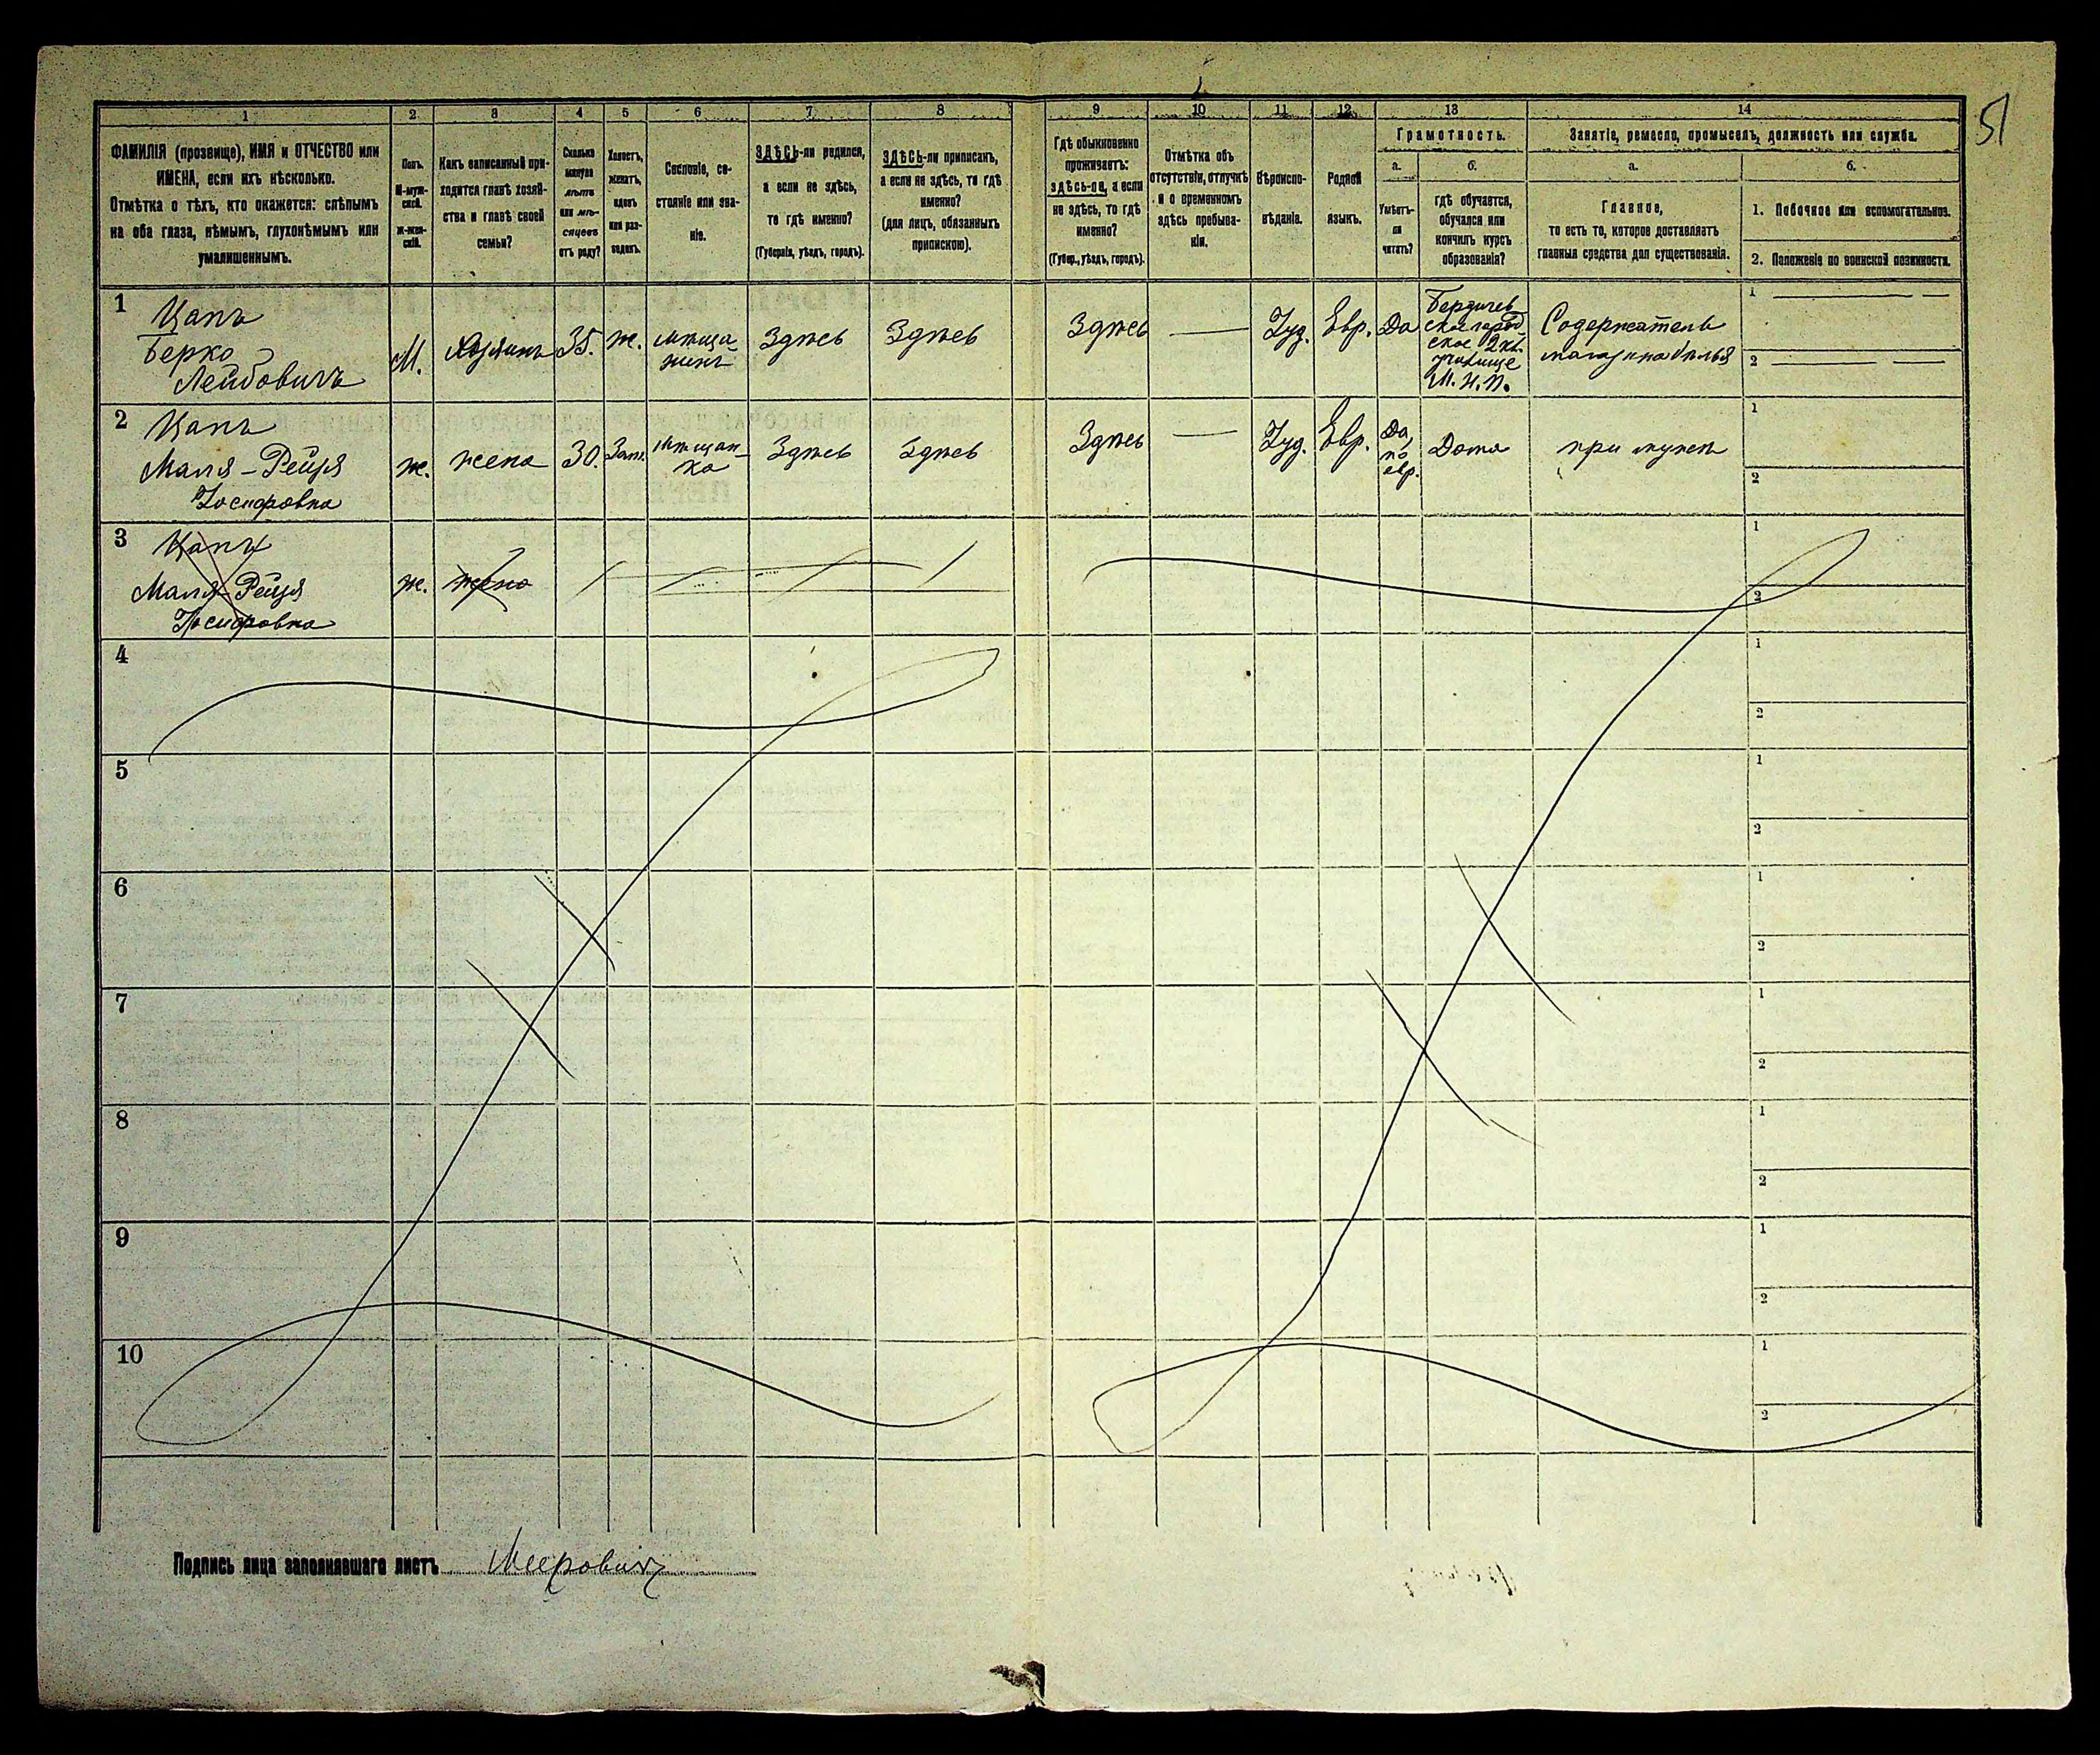 51
1
2
3
4
5
6
7
8
9
10
11
12
13
14
ФАМИЛІЯ (прозвище), ИМЯ и ОТЧЕСТВО или
ИМЕНА, если ихъ нѣсколько.
Отмѣтка о тѣхъ, кто окажется: слѣпымъ
на оба глаза, нѣмымъ, глухонѣмымъ или
умалишеннымъ.
Полъ.
М-муж-
ской.
ж-жен-
скій.
Какъ записанный при-
ходится главѣ хозяй-
ства и главѣ своей
семьи?
Сколько
минуло
лѣтъ
или мѣ-
сяцевъ
отъ роду?
Холостъ,
женатъ,
вдовъ
или раз-
веденъ.
Сословіе, со-
стояніе или зва-
ніе.
ЗДѢСЬ-ли родился,
а если не здѣсь,
то гдѣ именно?
(Губернія, уѣздъ, городъ).
ЗДѢСЬ-ли приписанъ,
а если не здѣсь, то гдѣ
именно?
(для лицъ, обязанныхъ
припискою).
Гдѣ обыкновенно
проживаетъ:
здѣсь-ли, а если
не здѣсь, то гдѣ
именно?
(Губер., уѣздъ, городъ).
Отмѣтка объ
отсутствіи, отлучкѣ
и о временномъ
здѣсь пребыва-
ніи.
Вѣроиспо-
вѣданіе.
Родной
языкъ.
Грамотность.
а.
б.
Умѣетъ-
ли
читать?
гдѣ обучается,
обучался или
кончилъ курсъ
образованія?
Занятіе, ремесло, промыселъ, должность или служба.
а.
б.
Главное,
то есть то, которое доставляетъ
главныя средства для существованія.
1. Побочное или вспомогательное.
2. Положеніе по воинской повинности.
1
Цапъ
Берко
Лейбовичъ
М.
хозяинъ
35.
ж.
мѣща-
нинъ
Здѣсь
Здѣсь
Здѣсь
Іуд.
Евр.
Да
Бердичев-
ское город-
ское 2 кл.
училище
М. Н. П.
Содержатель
магазина бѣлья
1
2
2
Цапъ
Маля-Рейзя
Іосифовна
ж.
жена
30.
Зам.
мѣщан-
ка
Здѣсь
Здѣсь
Здѣсь
Іуд.
Евр.
Да,
по
евр.
Дома
при мужѣ
1
2
3
Цапъ
Маля-Рейзя
Іосифовна
ж.
жена
1
2
4
1
2
5
1
2
6
1
2
7
1
2
8
1
2
9
1
2
10
1
2
Подпись лица заполнявшаго листъ
Меерович